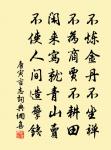 不炼金丹不坐禅
不为商贾不耕田
闲来写就青山卖
不使人间造孽钱
唐寅言志词典网集